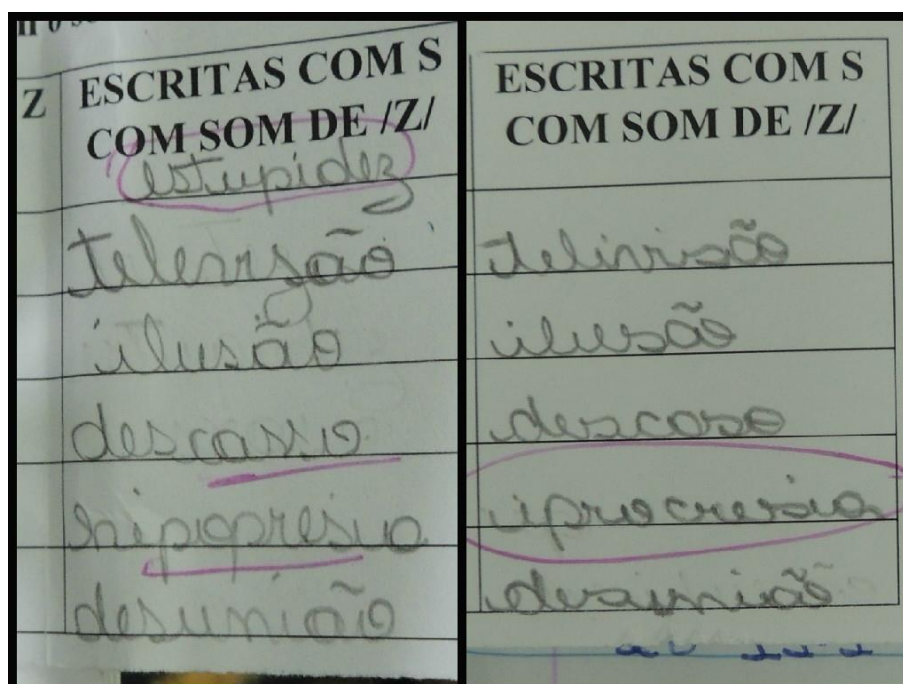 Z
ESCRITAS COM S
COM SOM DE /Z/
estupidez
televisão
ilusão
descasso
hipopresia
desunião
ESCRITAS COM S
COM SOM DE /Z/
telivisão
ilusão
descaso
iprocresia
desunião